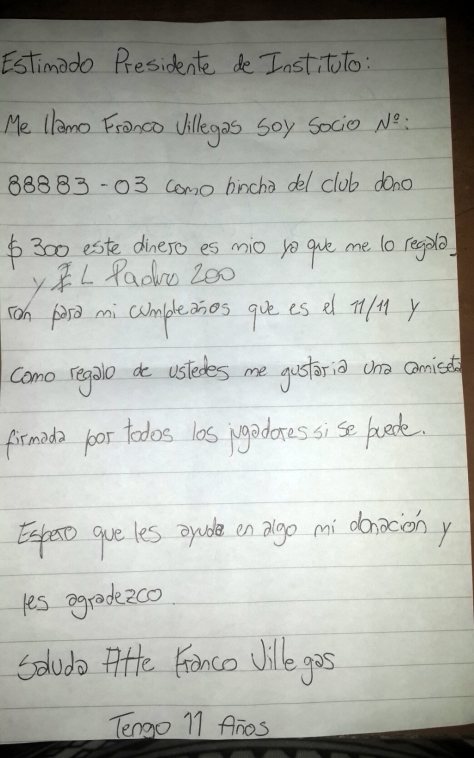 Estimado Presidente de Instituto:
Me llamo Franco Villegas soy socio Nº:
88883-03 como hincha del club dono
$ 300 este dinero es mio ya que me lo regala_
y 200
ron para mi cumpleaños que es el 11/11 y
como regalo de ustedes me gustaria una camiseta
firmada por todos los jugadores si se puede.
Espero que les ayude en algo mi donación y
les agradezco.
Saluda Atte Franco Villegas
Tengo 11 Años